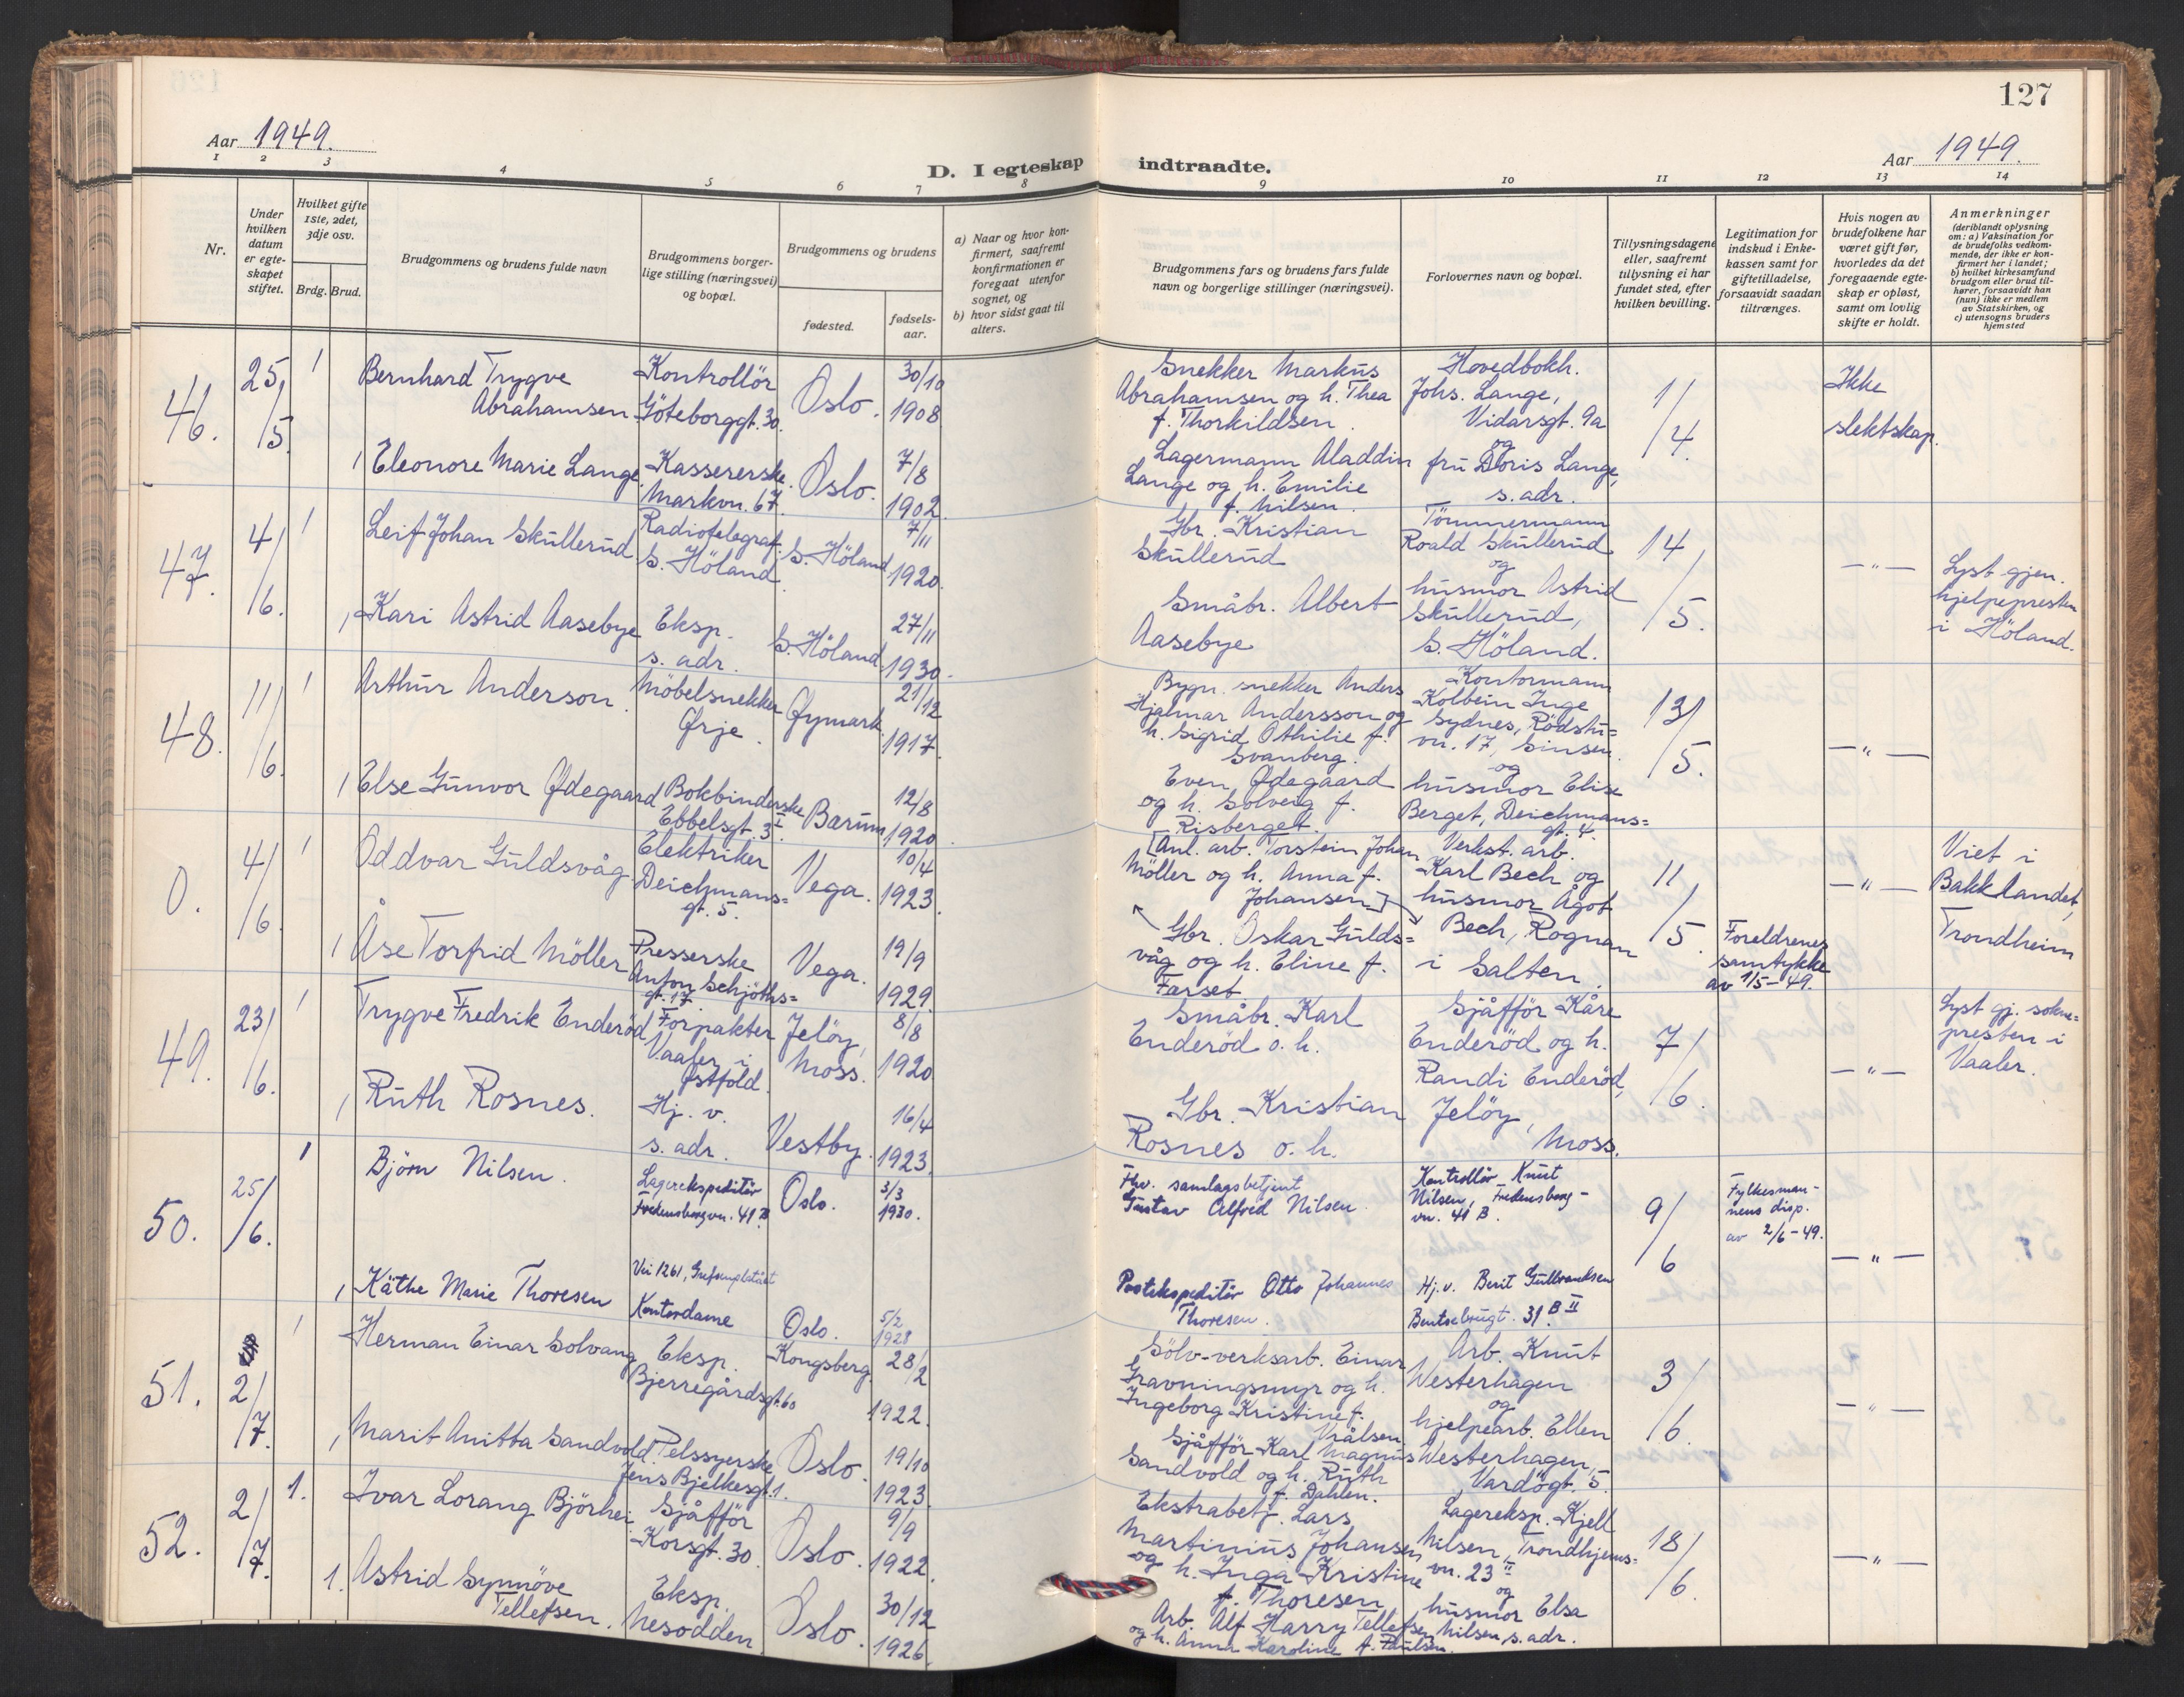 127
Aar 1949.
D. I egteskap indtraadte.
Aar 1949.
1 2 3 4 5 6 7 8 9 10 11 12 13 14
Nr.
Under hvilken datum er egte-skapet stiftet.
Hvilket gifte 1ste, 2det, 3dje osv.
Brdg. Brud.
Brudgommens og brudens fulde navn
Brudgommens borger-lige stilling (næringsvei) og bopæl.
Brudgommens og brudens
fødested.
fødsels-aar.
a) Naar og hvor kon-firmert, saafremt konfirmationen er foregaat utenfor sognet, og
b) hvor sidst gaat til alters.
Brudgommens fars og brudens fars fulde navn og borgerlige stillinger (næringsvei).
Forlovernes navn og bopæl.
Tillysningsdagene eller, saafremt tillysning ei har fundet sted, efter hvilken bevilling.
Legitimation for indskud i Enke-kassen samt for giftetilladelse, forsaavidt saadan tiltrænges.
Hvis nogen av brudefolkene har været gift før, hvorledes da det foregaaende egte-skap er opløst, samt om lovlig skifte er holdt.
Anmerkninger (deriblandt oplysning om: a) Vaksination for de brudefolks vedkom-mende, der ikke er kon-firmert her i landet; b) hvilket kirkesamfund brudgom eller brud til-hører, forsaavidt han (hun) ikke er medlem av Statskirken, og c) utensogns bruders hjemsted
46.
25/5.
1
Bernhard Trygve
Abrahamsen
Kontrollör
Göteborggt. 30.
Oslo.
30/10
1908
Snekker Markus
Abrahamsen og h. Thea
f. Thorkildsen.
Hovedbokh.
Johs. Lange,
Vidarsgt. 9a
og
1/4.
Ikke
slektskap.
1 Eleonore Marie Lange.
Kassererske.
Markvn. 67.
Oslo.
7/8
1902.
Lagermann Aladdin
Lange og h. Emilie
f. Nilsen.
fru Doris Lange,
s. adr.
47.
4/6.
1
Leif Johan Skullerud
Radiotelegraf.
S. Höland.
S. Höland
7/11
1920.
Gbr. Kristian
Skullerud
Tömmermann
Roald Skullerud
og
14/5.
— " —
Lyst gjen.
hjelpepresten
i Höland.
1 Kari Astrid Aasebye
Eksp.
s. adr.
S. Höland.
27/11
1930.
Småbr. Albert
Aasebye
husmor Astrid
Skullerud,
S. Höland.
48.
11/6.
1
Arthur Anderson.
Möbelsnekker
Ørje.
Øymark.
21/12
1917.
Bygn. snekker Anders
Hjalmar Andersson og
h. Sigrid Othilie f.
Svanberg.
Kontormann
Kolbein Inge
Sydnes, Rödstu=
vn. 17, Sinsen.
og
13/5.
— " —
1 Else Gunvor Ødegaard
Bokbinderske
Ebbelsgt. 3 I
Bærum
12/8
1920.
Even Ødegaard
og h. Solveig f.
Risberget.
husmor Elise
Berget, Deichmans=
gt. 4.
0.
4/6.
1
Oddvar Guldsvåg.
Elektriker
Deichmans=
gt. 5.
Vega.
10/4
1923.
[Anl. arb. Torstein Johan
Möller og h. Anna f.
Johansen]
Verkst. arb.
Karl Bech og
husmor Ågot
Bech, Rognan
i Salten.
11/5.
— " —
Viet i
Bakklandet,
Trondheim
1 Åse Torfrid Möller
Presserske
Anton Schjöths=
gt. 17
Vega.
19/9
1929.
Gbr. Oskar Gulds=
våg og h. Eline f.
Farset.
Foreldrenes
samtykke
av 1/5-49.
49.
23/6.
1
Trygve Fredrik Enderöd
Forpakter
Vaaler i
Østfold.
Jelöy,
Moss.
8/8
1920
Småbr. Karl
Enderöd o. h.
Sjåfför Kåre
Enderöd og h.
Randi Enderöd,
Jelöy,
Moss.
7/6.
— " —
Lyst gj. sokne=
presten i
Vaaler.
1 Ruth Rosnes.
Hj. v.
s. adr.
Vestby.
16/4
1923.
Gbr. Kristian
Rosnes o. h.
50.
25/6.
1
Björn Nilsen.
Lagerekspeditör
Fredensborgvn. 41 B
Oslo.
3/3
1930.
Fhv. samlagsbetjent
Gustav Alfred Nilsen.
Kontrollör Knut
Nilsen, Fredensborg-
vn. 41 B.
9/6
Fylkesman-
nens disp.
av 2/6-49.
— " —
1 Käthe Marie Thoresen
Vei 1261, Grefsenplatået
Kontordame
Oslo.
5/2
1928
Postekspeditör Otto Johannes
Thoresen.
Hj. v. Berit Gulbrandsen
Bentsebrugt. 31 B II
51.
2/7.
1
Herman Einar Solvang
Eksp.
Bjerregårdsgt. 60
Kongsberg
28/2
1922.
Sölv-verksarb. Einar
Gravningsmyr og h.
Ingeborg Kristine f.
Vrålsen
Arb. Knut
Westerhagen
og
3/6.
— " —
1 Marit Anitta Sandvold.
Pelssyerske
Jens Bjelkesgt. 1.
Oslo.
19/10
1923.
Sjåfför Karl Magnus
Sandvold og h. Ruth
f. Dahlen.
hjelpearb. Ellen
Westerhagen,
Vardögt. 5.
52.
2/7.
1.
Ivar Lorang Björhei
Sjåfför
Korsgt. 30.
Oslo.
9/9
1922.
Ekstrabetj. Lars
Martinius Johansen
og h. Inga Kristine
f. Thoresen
Lagereksp. Kjell
Nilsen, Trondhjems=
vn. 23 II
og
18/6.
— " —
1. Astrid Synnöve
Tellefsen.
Eksp.
Nesodden
Oslo.
30/12
1926.
Arb. Alf Harry Tellefsen
og h. Anna Karoline f. Paulsen.
husmor Elsa
Nilsen, s. adr.